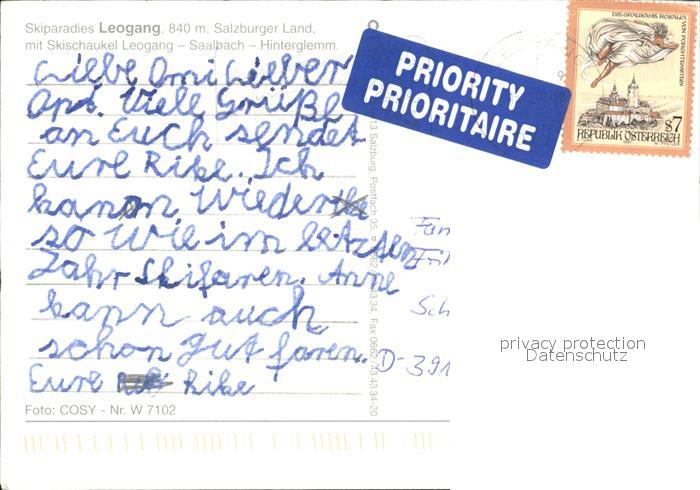 Skiparadies Leogang, 840 m, Salzburger Land,
mit Skischaukel Leogang – Saalbach – Hinterglemm.
Liebe Omi Lieber
Opi. Viele Grüße
an Euch sendet
Eure Rike. Ich
kann Wieder
so Wie im letzten
Jahr Skifaren. Anne
kann auch
schon gut faren.
Eure Rike
Foto: COSY - Nr. W 7102
13 Salzburg, Postfach 35,
43 43 34, Fax 0662/43 43 34-20
PRIORITY
PRIORITAIRE
DIE GRAUSAME ROSALIE
VON FORCHTENSTEIN
S7
REPUBLIK ÖSTERREICH
Fam
Sch
D-391
privacy protection
Datenschutz